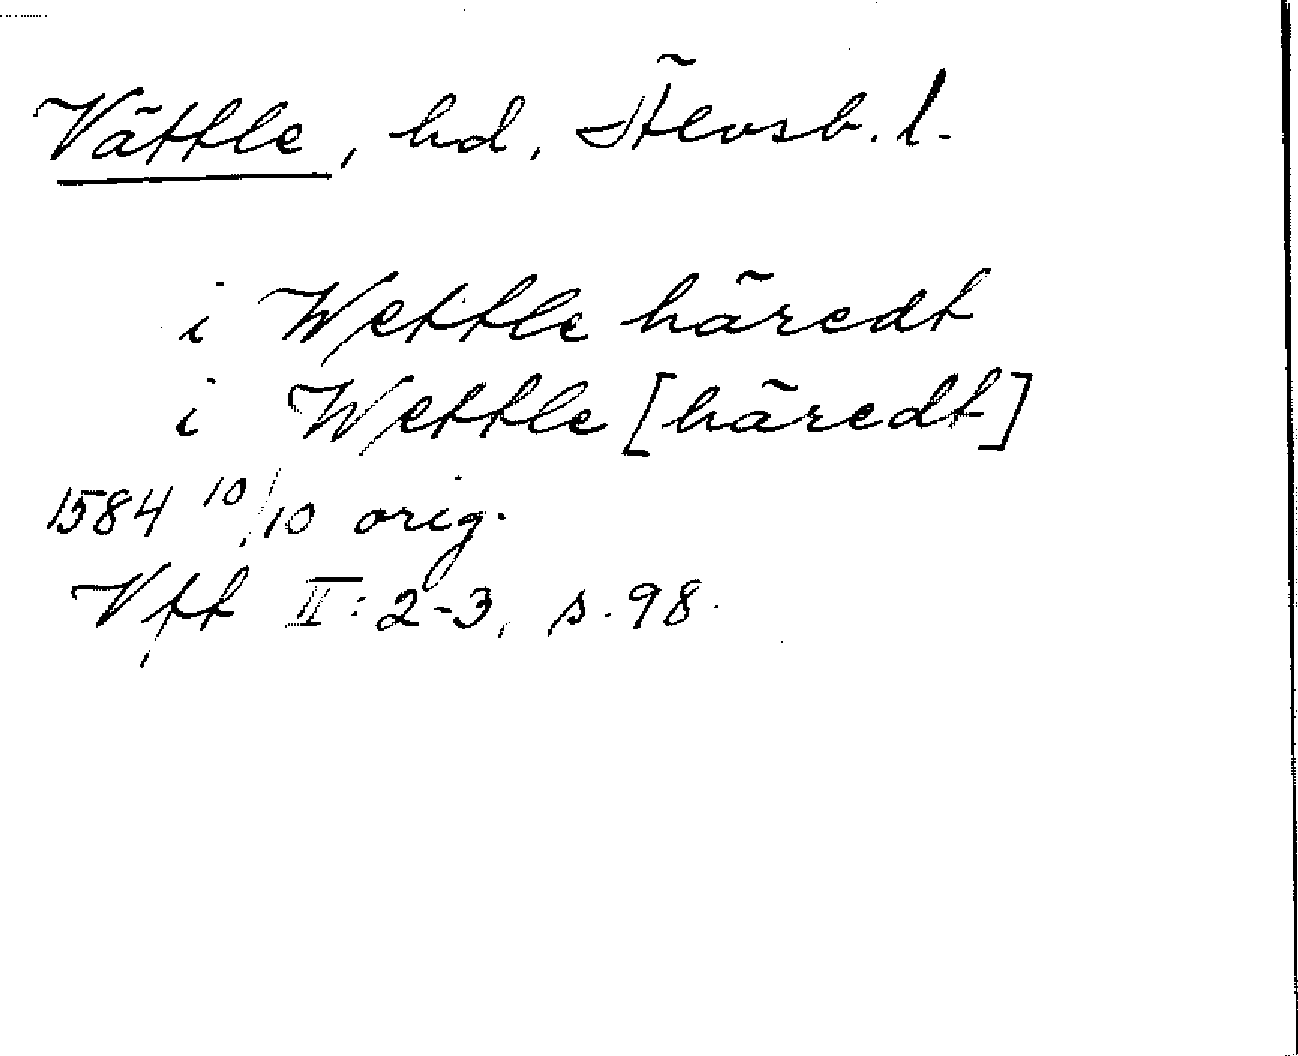 Vättle, hd, Älvsb. l.
i Wettle häredt
i Wettle [häredt]
1584 10/10 orig.
Vft II: 2-3, s. 98.